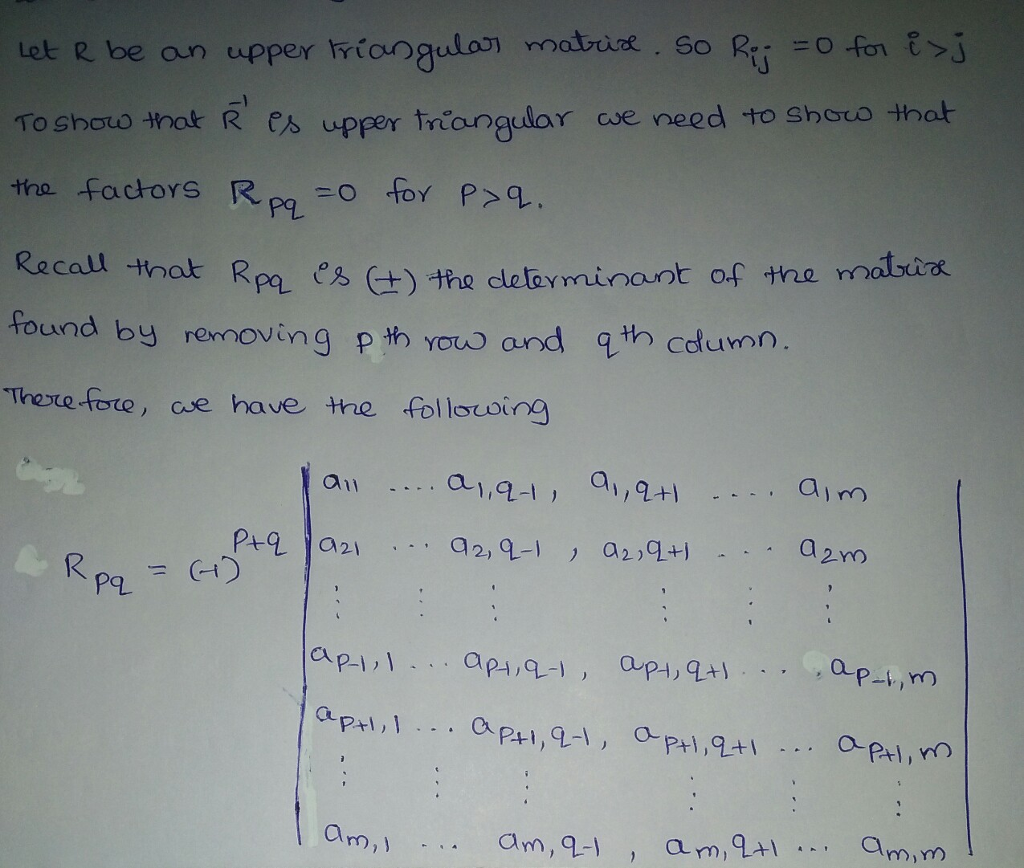 Let R be an upper triangular matrix. So Rij = 0 for i>j
To show that R⁻¹ is upper triangular we need to show that
the factors Rpq = 0 for p>q.
Recall that Rpq is (±) the determinant of the matrix
found by removing pth row and qth column.
Therefore, we have the following
a11 .... a1,q-1, a1,q+1 .... a1m
Rpq = (-1)^p+q a21 ... a2,q-1, a2,q+1 ... a2m
⋮ ⋮ ⋮ ⋮ ⋮ ⋮
ap-1,1 ... ap-1,q-1, ap-1,q+1 ... ap-1,m
ap+1,1 ... ap+1,q-1, ap+1,q+1 ... ap+1,m
⋮ ⋮ ⋮ ⋮ ⋮ ⋮
am,1 ... am,q-1, am,q+1 ... am,m